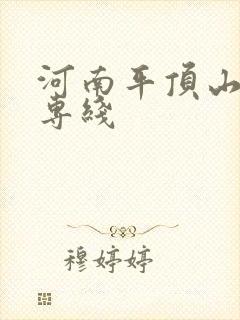 河南平頂山
専綫
穆婷婷